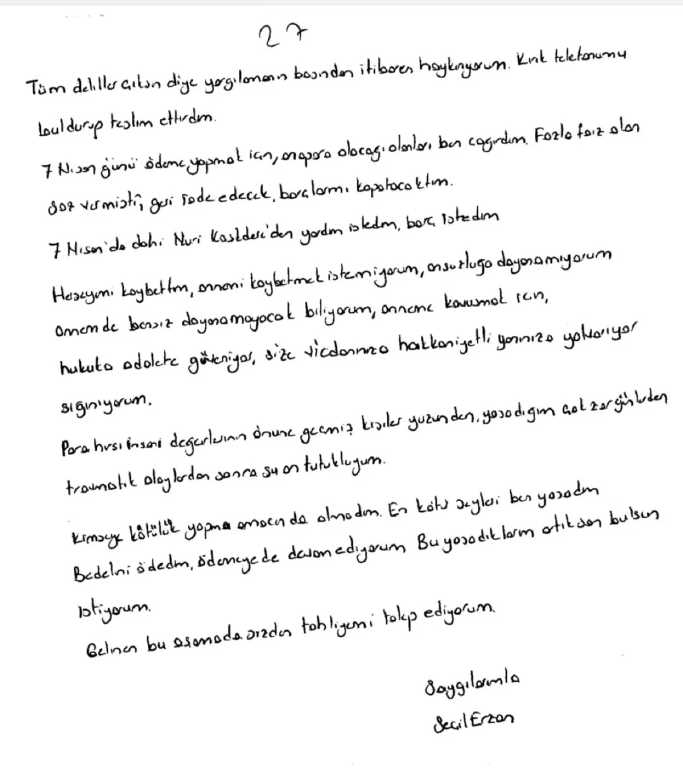 27
Tüm deliller çıksın diye yargılamanın başından itibaren haykırıyorum. Kırık telefonumu
buldurup teslim ettirdim.
7 Nisan günü ödeme yapmak için, anapara alacağı olanları ben çağırdım. Fazla faiz alan
söz vermişti, geri iade edecek, borçlarımı kapatacaktım.
7 Nisan'da dahi Nuri Kasldere'den yardım istedim, borç istedim
Herşeyimi kaybettim, annemi kaybetmek istemiyorum, onsuzluğa dayanamıyorum
annem de bensiz dayanamayacak biliyorum, anneme kavuşmak için,
hukuka adalete güveniyor, size vicdanınıza hakkaniyetli yanınıza yalvarıyor
sığınıyorum.
Para hırsı insani değerlerinin önüne geçmiş kişiler yüzünden, yaşadığım çok zor günlerden
travmatik olaylardan sonra şu an tutukluyum.
Kimseye kötülük yapma amacında olmadım. En kötü şeyleri ben yaşadım
Bedelini ödedim, ödemeye de devam ediyorum. Bu yaşadıklarım artık son bulsun
istiyorum.
Gelinen bu aşamada sizden tahliyemi talep ediyorum.
Saygılarımla
Seçil Erzan